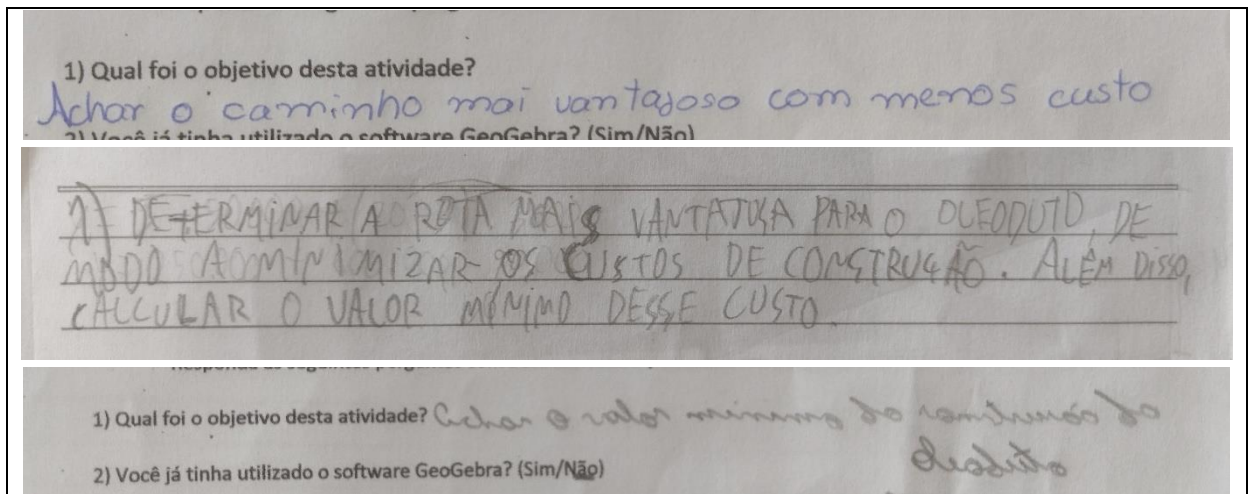 1) Qual foi o objetivo desta atividade?
Achar o caminho mai vantajoso com menos custo
2) Você já tinha utilizado o software GeoGebra? (Sim/Não)
1) DETERMINAR A ROTA MAIS VANTAJOSA PARA O OLEODUTO, DE
MODO A MINIMIZAR OS CUSTOS DE CONSTRUÇÃO. ALÉM DISSO,
CALCULAR O VALOR MÍNIMO DESSE CUSTO.
1) Qual foi o objetivo desta atividade? Achar o valor minimo do construcão do
Oleoduto
2) Você já tinha utilizado o software GeoGebra? (Sim/Não)